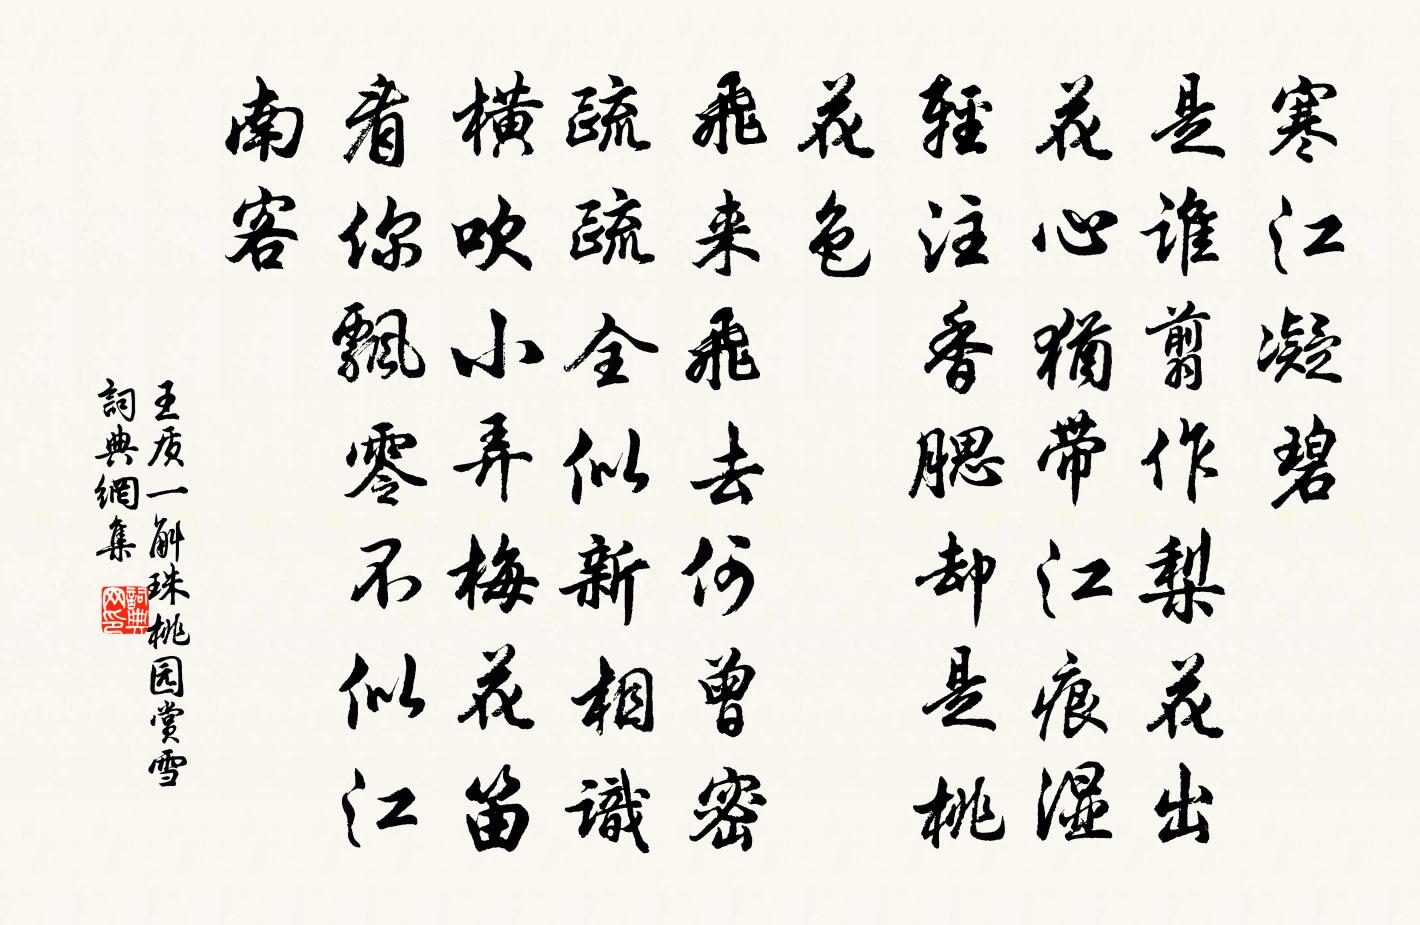 寒江凝碧
是谁剪作梨花出
花心猶带江痕湿
輕注香腮却是桃
花色
飛来飛去何曾密
疏疏全似新相識
横吹小弄梅花笛
看你飘零不似江
南客
王质一斛珠桃园赏雪
詞典網集
詞典网印